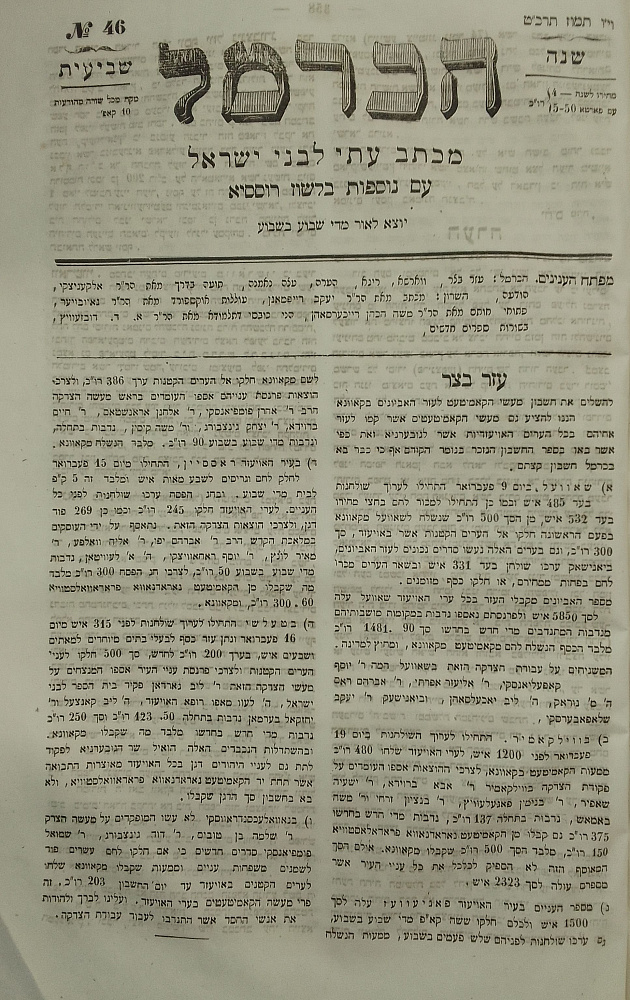 № 46
ויו תמוז תרכ״ט
שנה
שביעית
מחירו לשנה — 14 רו״כ
עם פארטא 15-50 רו״כ
מקח מכל שורה מהודעות
10 קאפ׳
הכרמל
מכתב עתי לבני ישראל
עם נוספות בלשון רוססיא
יוצא לאור מדי שבוע בשבוע
מפתח הענינים. הכרמל: עזר בצר, ווארשא, ריגא,
השרון: מכתב מאת הר״ר יעקב רייפמאן,
בשורות ספרים חדשים,
עזר בצר
להשלים את חשבון מעשי הקאמיטעט לעזר האביונים בקאוונא
הננו להציע גם מעשי הקאמיטעטים אשר קמו לעזר
אחיהם בכל הערים האויעזדיות אשר לגובערניא זאת כפי
אשר באו בספר החשבון הנזכר בנומר הקודם אף כי כבר בא
בכרמל חשבון קצתם.
א) שאוועל. ביום 9 פעברואר התחילו לערוך שולחנות
בעד 485 איש ובמו כן התחילו למכור לחם בחצי מחירו
בעד 532 איש, מן הסך 500 רו״כ שנשלח לשאוועל מקאוונא
בפעם הראשונה חלקו אל הערים הקטנות אשר באויעזד, סך
300 רו״כ, וגם בערים האלה נעשו סדרים נכונים לעזר האביונים,
ביאנישאק ערכו שולחן בעד 331 איש ובשאר הערים מכרו
לחם בפחות ממחירם, או חלקו כסף מזומנים.
מספר האביונים מקבלי העזר בכל ערי האויעזד שאוועל עלה
לסך 5850 איש ולפרנסתם נאספו נדבות במקומות מושבותיהם
מנדבות המתנדבים מדי חדש בחדשו סך 90. 1481 רו״כ
מלבד הכסף הנשלח להם מקאמיטעט מקאוונא, ומחוץ למדינה.
המשגיחים על עבודת הצדקה הזאת בשאוועל המה ר׳ יוסף
קאפעליאנסקי, ר׳ אליעזר אפרתי, ר׳ אברהם ראם
ה׳ מ׳ גוראק, ה׳ ליב יאכעלסאהן, וביאנישעק ר׳ יעקב
שלאפאבערסקי,
ב) בווילקאמיר. התחילו לערוך השולחנות ביום 19
פעברואר לפני 1200 איש, לערי האויעזד שלחו 480 רו״כ
ממעות הקאמיטעט בקאוונא, לצרכי ההוצאות אספו העומדים על
פקודת הצדקה בווילקאמיר ר׳ אבא ברוידא, ר׳ ישעיה
שאפיר, ר׳ בנימין פאגעלעוויץ, ר׳ בנציון זרחי ור׳ משה
באמאש, נדבות בתחלה 137 רו״כ, נדבות מדי חדש בחדשו
375 רו״כ גם קבלו מן הקאמיטעט גארדאנאווא פראדאלסטוויא
150 רו״כ, מלבד הסך 500 רו״כ שקבלו מקאוונא. אולם הסך
המאוסף הזה לא הספיק לכלכל את כל עניי העיר אשר
מספרם עולה לסך 2323 איש.
ג) מספר העניים בעיר האויעזד פאניעוועז עלה לסך
1500 איש ולכלם חלקו ששה קא״פ מדי שבוע בשבוע,
גם ערכו שולחנות לפניהם שלש פעמים בשבוע, ממעות הנשלח
לשם מקאוונא חלקו אל הערים הקטנות ערך 386 רו״כ, ולצרכי
הוצאות פרנסת ענייהם אספו העומדים בראש מעשה הצדקה
הרב ר׳ אהרן פומפיאנסקי, ר׳ אלחנן אראנשטאם, ר׳ חיים
ברוידא, ר׳ יצחק גינצבורג, ור׳ משה קיסין, נדבות בתחלה,
ונדבות מדי שבוע בשבוע 90 רו״כ. מלבד הנשלח מקאוונא.
ד) בעיר האויעזד ראססיין, התחילו מיום 15 פעברואר
לחלק לחם וגריסים לשבע מאות איש ומלבד זה 5 ק״פ
לבית מדי שבוע. ובחג הפסח ערכו שולחנות לפני כל
העניים. לערי האויעזד חלקו 245 רו״כ וכמו כן 269 פוד
דגן, ולצרכי הוצאות הצדקה הזאת. נתאסף על ידי העוסקים
במלאכת הקדש הרב ר׳ אברהם יפו, ר׳ אליה וואלפע, ד׳
מאיר לונץ, ר׳ יוסף ראחאוויצקי, ה׳ א׳ לעוויטאן, נדבות
מדי שבוע בשבוע 50 רו״כ, לצרכי חג הפסח 300 רו״כ מלבד
מה שקבלו מן הקאמיטעט גארדאנאווא פראדאוואלסטוויא
60. 300 רו״כ, ומקאוונא.
ה) בטעלשי התחילו לערוך שולחנות לפני 315 איש מיום
16 פעברואר ונתן עזר כסף לבעלי בתים מיוחדים למאתים
ושבעים איש, בערך 200 רו״כ לחדש, סך 500 חלקו לעניי
הערים הקטנות ולצרכי פרנסת עניי העיר אספו המנצחים על
מעשי הצדקה הזאת ר׳ ליב גארדאן פקיד בית הספר לבני
ישראל, ה׳ לעוו מאפו רופא האויעזד, ה׳ ליב קאנצעל ור׳
יחזקאל בערמאן נדבות בתחלה 50. 423 רו״כ וסך 250 רו״כ
נדבות מדי חדש בחדשו מלבד מה שקבלו מקאוונא.
ובהשתדלות הנכבדים האלה הואיל שר הגובערניא לפקוד
לתת גם לעניי היהודים דגן בכל האויעזד מאוצרות התבואה
אשר תחת יד הקאמיטעט גארדאנאווא פראדאוואלסטוויא, ולא
בא בחשבון סך הדגן שקבלו.
ו) בנאוואלעכסנדראווסקי לא עשו המופקדים על מעשה הצדק
ר׳ שלמה בן טובים, ר׳ דוד גינצבורג, ר׳ שמואל
פומפיאנסקי סדרים חדשים כי אם חלקו לחם עשרים פוד
לשמנים משפחות עניים וממעות שקבלו מקאוונא שלחו
לערים הקטנים באויעזד עד יום החשבון 203 רו״כ. זה
פרי מעשה הקאמיטעטים בערי האויעזד. ועלינו לברך ולהודות
את אנשי החסד אשר התנדבו לעבוד עבודת הצדקה.